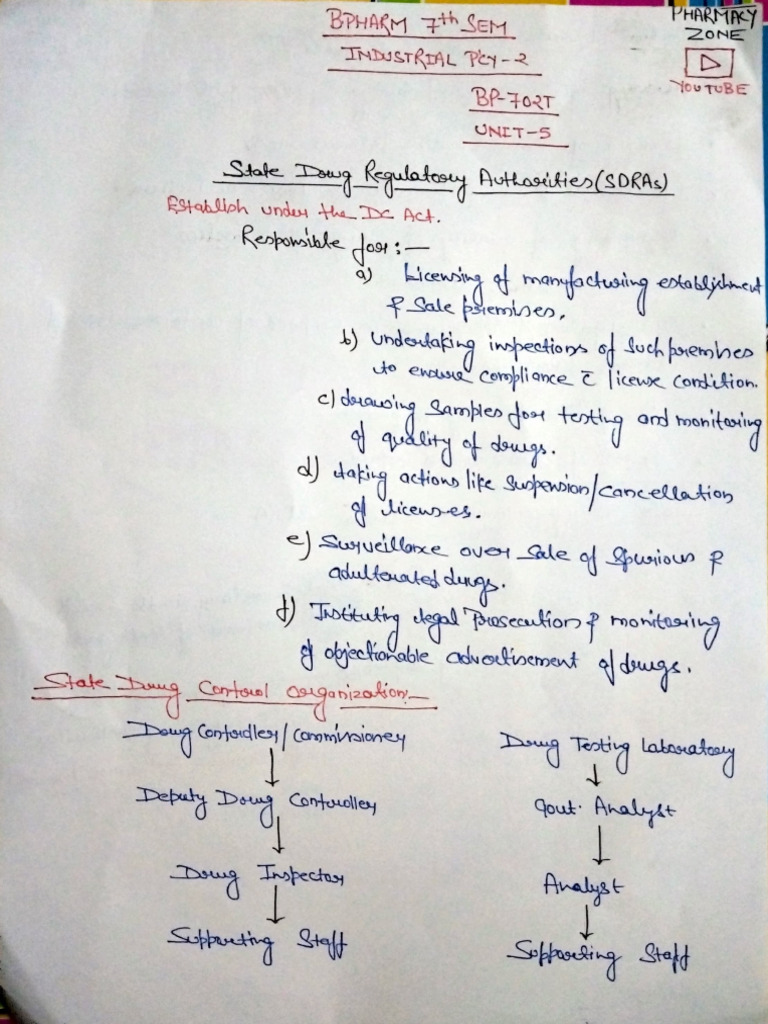 BPHARM 7th SEM
PHARMACY
ZONE
INDUSTRIAL P'CY-2
YOUTUBE
BP-702T
UNIT-5
State Drug Regulatory Authorities (SDRAs)
Establish under the DC Act.
Responsible for:—
a) Licensing of manufacturing establishment
& Sale premises.
b) undertaking inspections of Such premises
to ensure compliance c̄ license condition.
c) drawing Samples for testing and monitoring
of quality of drugs.
d) taking actions like Suspension/Cancellation
of licenses.
e) Surveillance over Sale of Spurious &
adulterated drugs.
f) Instituting legal Prosecution & monitoring
of objectionable advertisement of drugs.
State Drug Control Organization:—
Drug Controller/Commissioner
Drug Testing Laboratory
↓
↓
Deputy Drug Controller
Govt. Analyst
↓
↓
Drug Inspector
Analyst
↓
↓
Supporting Staff
Supporting Staff